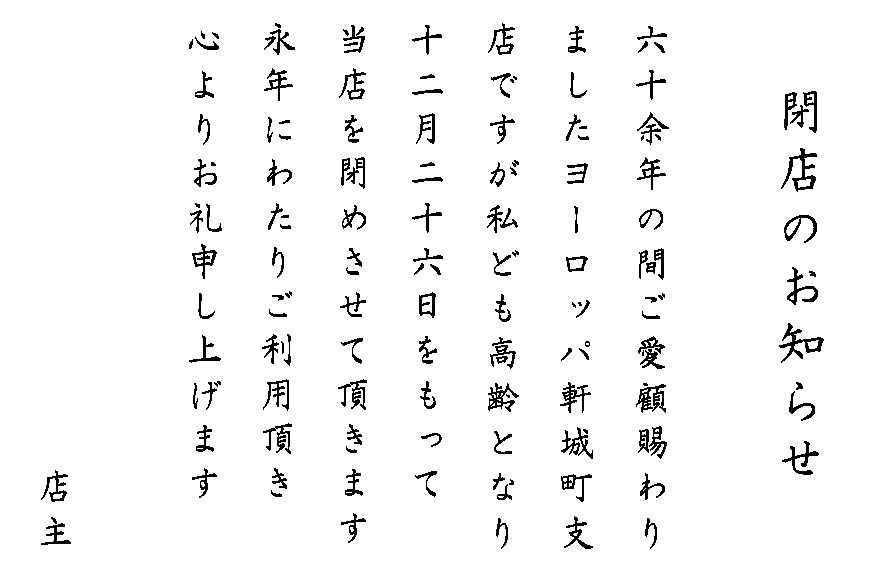 閉店のお知らせ
六十余年の間ご愛顧賜わり
ましたヨーロッパ軒城町支
店ですが私ども高齢となり
十二月二十六日をもって
当店を閉めさせて頂きます
永年にわたりご利用頂き
心よりお礼申し上げます
店主